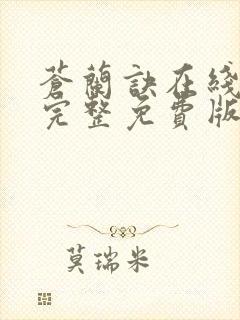 蒼蘭訣在綫
完整免費版
莫瑞米